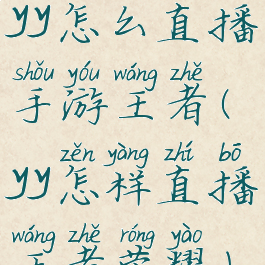 yy怎么直播
shǒu yóu wáng zhě
手游王者(
zěn yàng zhí bō
yy怎样直播
wáng zhě róng yào
王者荣耀)